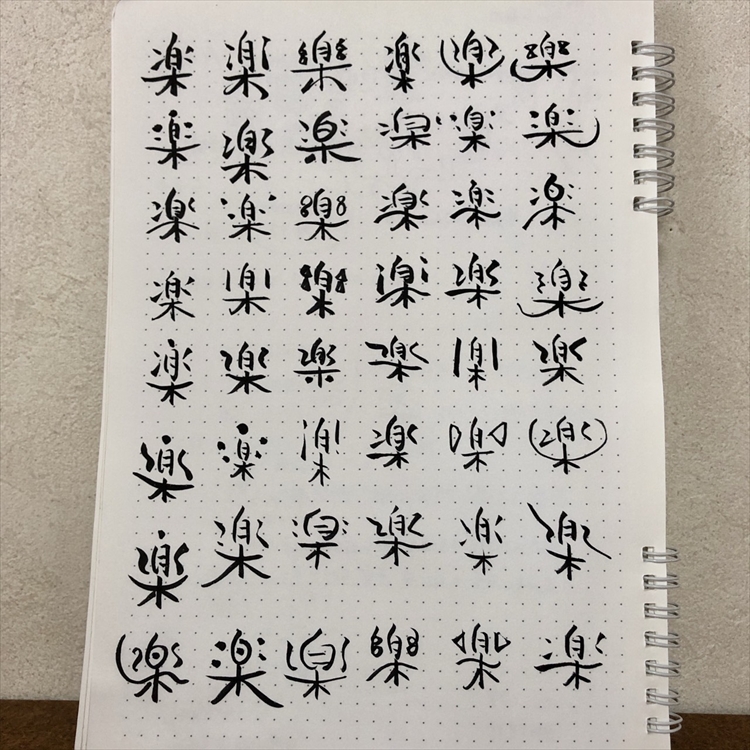 楽楽樂楽楽樂
楽楽楽楽楽楽
楽楽樂楽楽楽
楽楽樂楽楽楽
楽楽楽楽楽楽
楽楽楽楽楽楽
楽楽楽楽楽楽
楽楽楽樂楽楽